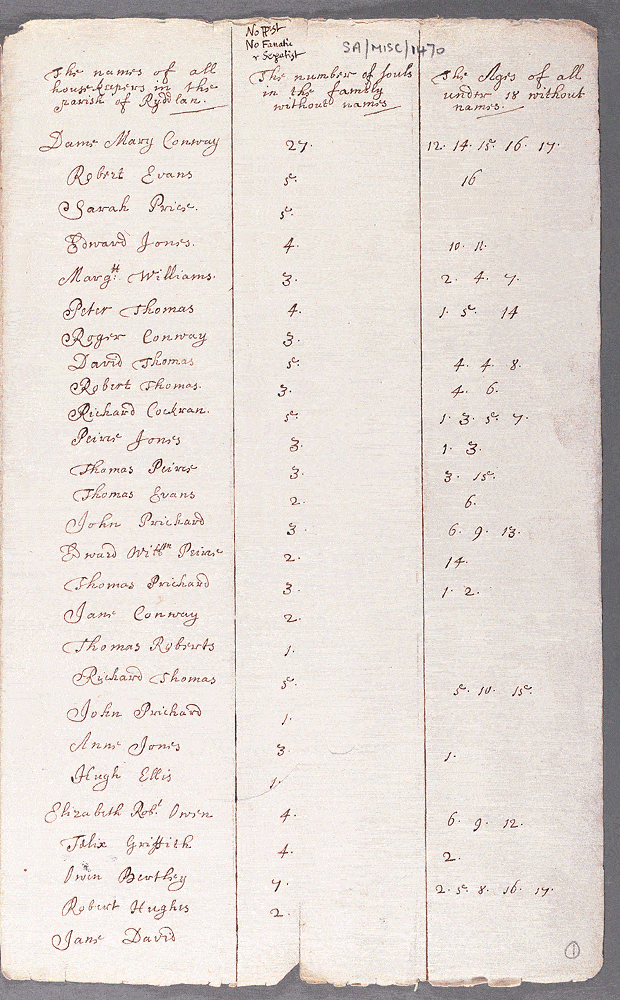 No Pist
No Fanatic
r Sepatist
SA/MISC/1470
The names of all
housekeepers in the
parish of Ryddlan.
The number of souls
in the family
without names
The Ages of all
under 18 without
names.
Dame Mary Conway 27. 12. 14. 15. 16. 17.
Robert Evans 5. 16
Sarah Price. 5.
Edward Jones. 4. 10. 11.
Marg:tt Williams. 3. 2. 4. 7.
Peter Thomas 4. 1. 5. 14
Roger Conway 3.
David Thomas 5. 4. 4. 8.
Robert Thomas. 3. 4. 6.
Richard Cockran. 5. 1. 3. 5. 7.
Peirce Jones 3. 1. 3.
Thomas Peirce 3. 3. 15.
Thomas Evans 2. 6.
John Prichard 3. 6. 9. 13.
Edward Peirce 2. 14.
Thomas Prichard 3. 1. 2.
Jane Conway 2.
Thomas Roberts 1.
Richard Thomas 5. 5. 10. 15.
John Prichard 1.
Anne Jones 3. 1.
Hugh Ellis 1.
Elizabeth Rob.t Owen 4. 6. 9. 12.
Felix Griffith 4. 2.
Owen Berthey 7. 2. 5. 8. 16. 17.
Robert Hughes 2.
Jane David
1